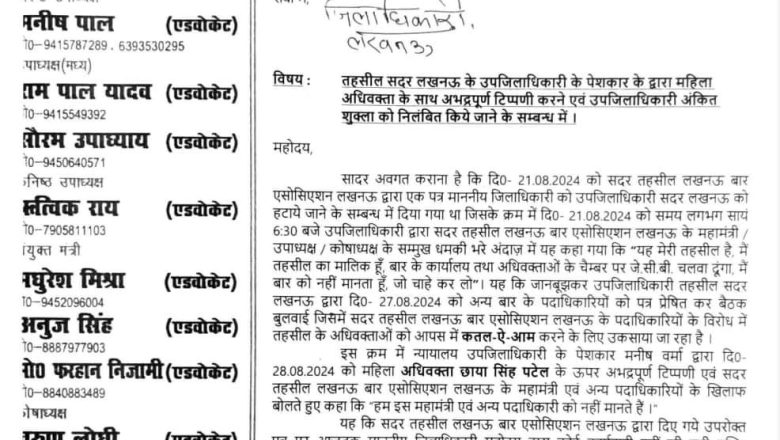 मनीष पाल (एडवोकेट)
मो0-9415787289, 6393530295
उपाध्यक्ष(मध्य)
राम पाल यादव (एडवोकेट)
मो0-9415549392
सौरभ उपाध्याय (एडवोकेट)
मो0-9450640571
कनिष्ठ उपाध्यक्ष
ऋत्विक राय (एडवोकेट)
मो0-7905811103
संयुक्त मंत्री
मधुरेश मिश्रा (एडवोकेट)
मो0-9452096004
अनुज सिंह (एडवोकेट)
मो0-8887977903
मो0 फरहान निजामी(एडवोकेट)
मो0-8840883489
कोषाध्यक्ष
जिलाधिकारी,
लखनऊ
विषय : तहसील सदर लखनऊ के उपजिलाधिकारी के पेशकार के द्वारा महिला
अधिवक्ता के साथ अभद्रपूर्ण टिप्पणी करने एवं उपजिलाधिकारी अंकित
शुक्ला को निलंबित किये जाने के सम्बन्ध में ।
महोदय,
सादर अवगत कराना है कि दि0- 21.08.2024 को सदर तहसील लखनऊ बार
एसोसिएशन लखनऊ द्वारा एक पत्र माननीय जिलाधिकारी को उपजिलाधिकारी सदर लखनऊ को
हटाये जाने के सम्बन्ध में दिया गया था जिसके क्रम में दि0- 21.08.2024 को समय लगभग सायं
6:30 बजे उपजिलाधिकारी द्वारा सदर तहसील बार एसोसिएशन लखनऊ के महामंत्री /
उपाध्यक्ष / कोषाध्यक्ष के सम्मुख धमकी भरे अंदाज़ में यह कहा गया कि “यह मेरी तहसील है, मैं
तहसील का मालिक हूँ, बार के कार्यालय तथा अधिवक्ताओं के चैम्बर पर जे.सी.बी. चलवा दूंगा, मैं
बार को नहीं मानता हूँ, जो चाहे कर लो”। यह कि जानबूझकर उपजिलाधिकारी तहसील सदर
लखनऊ द्वारा दि0- 27.08.2024 को अन्य बार के पदाधिकारियों को पत्र प्रेषित कर बैठक
बुलवाई जिसमें सदर तहसील बार एसोसिएशन लखनऊ के पदाधिकारियों के विरोध में
तहसील के अधिवक्ताओं को आपस में कतल-ऐ-आम करने के लिए उकसाया जा रहा है ।
इस क्रम में न्यायालय उपजिलाधिकारी के पेशकार मनीष वर्मा द्वारा दि0-
28.08.2024 को महिला अधिवक्ता छाया सिंह पटेल के ऊपर अभद्रपूर्ण टिप्पणी एवं सदर
तहसील बार एसोसिएशन लखनऊ के महामंत्री एवं अन्य पदाधिकारियों के खिलाफ
बोलते हुए कहा कि “हम इस महामंत्री एवं अन्य पदाधिकारी को नहीं मानते हैं ।”
यह कि सदर तहसील लखनऊ बार एसोसिएशन लखनऊ द्वारा दिए गये उपरोक्त